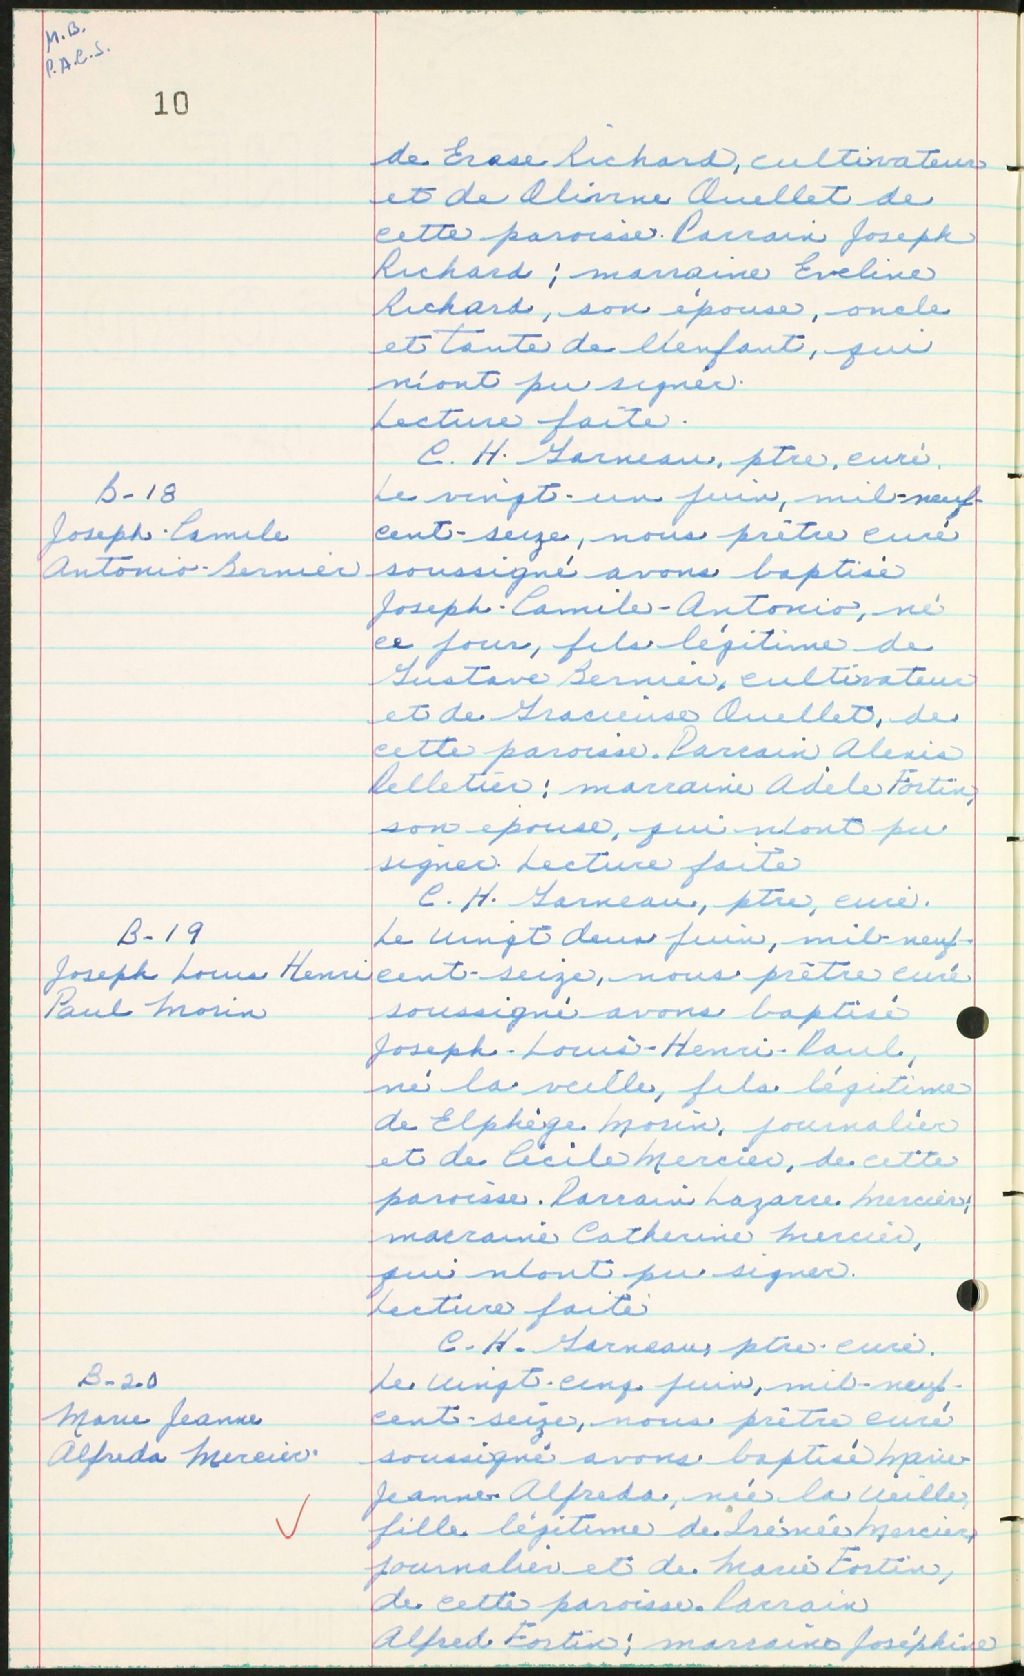 M.B.
P.A.C.S.
10
de Erase Richard, cultivateur
et de Olivine Ouellet de
cette paroisse. Parrain Joseph
Richard; marraine Eveline
Richard, son épouse, oncle
et tante de l'enfant, qui
n'ont pu signer.
Lecture faite.
C. H. Garneau, ptre, curé.
B-18
Joseph-Camile
Antonio-Bernier
Le vingt-un juin, mil-neuf-
cent-seize, nous prêtre curé
soussigné avons baptisé
Joseph-Camile-Antonio, né
ce jour, fils légitime de
Gustave Bernier, cultivateur
et de Gracieuse Ouellet, de
cette paroisse. Parrain Alexis
Pelletier; marraine Adèle Fortin,
son épouse, qui n'ont pu
signer. Lecture faite
C. H. Garneau, ptre, curé.
B-19
Joseph Louis Henri
Paul Morin
Le vingt deux juin, mil-neuf-
cent-seize, nous prêtre curé
soussigné avons baptisé
Joseph-Louis-Henri-Paul,
né la veille, fils légitime
de Elphège Morin, journalier
et de Cécile Mercier, de cette
paroisse. Parrain Lazarre Mercier;
marraine Catherine Mercier,
qui n'ont pu signer.
Lecture faite
C. H. Garneau, ptre-curé.
B-20
Marie Jeanne
Alfreda Mercier.
Le vingt-cinq juin, mil-neuf-
cent-seize, nous prêtre curé
soussigné avons baptisé Marie-
Jeanne-Alfreda, née la veille,
fille légitime de Irénée Mercier,
journalier et de Marie Fortin,
de cette paroisse. Parrain
Alfred Fortin; marraine Joséphine